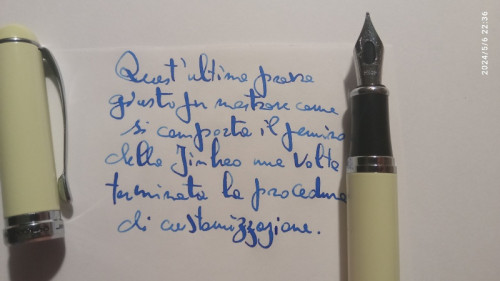 Quest'ultima prova
giusto per mostrare come
si comporta il pennino
della Jinhao una volta
terminata la procedura
di customizzazione.
2024/5/6 22:36